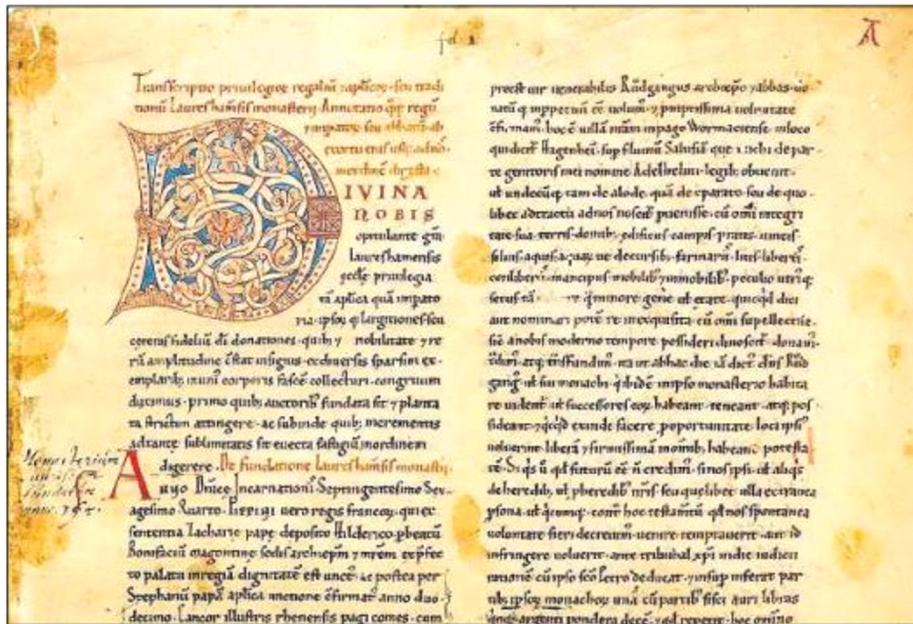 fol 1
A
Transcriptio privilegioꝝ regaliū ⁊ aplicoꝝ seu tradi
tionū Laureshamsis monasterii Annotatio qq̄ regū
⁊ impatoꝝ seu abbatū ab
exortu eius usq; ad nrā
IVINA
NOBIS
opitulante grā
laureshamensis
eccle privilegia
tā aplica quā impato
ria ipsoꝝ q̨ largitiones seu
ceteris fideliū di donationes quib; ⁊ nobilitate ⁊ re
rū amplitudine cstat insignis ecdiversis sparsim ex
emplarib; in uni corporis fascē collecturi congruum
ducimus primo quib; auctorib; fundata sit ⁊ planta
ta strictim attingere ac subinde quib; incrementis
ad tantę sublimitatis sit evecta fastigiū in ordinem
digerere. De fundatione laureshamsis monasterii
Monasterium
fundatum
anno 764
Anno Dnice Incarnationis Septingentesimo Sex
agesimo Quarto Pippini vero regis francoꝝ qui ex
sententia Zacharie pape deposito Hilderico p beatū
Bonifaciū magontine sedis archiepm ex pfec
to palatii in regiā dignitatē est unctus ac postea per
Stephanū papā aplica unctione cfirmat anno duo
decimo Cancor illustris rhenensis pagi comes cum
preest vir venerabilis Rūdgangus archiepc ⁊ abbas do
natū q̨ inppetuū eē volum ⁊ p̄mptissima voluntate
cfirmam hoc ē villā nram in pago Wormaciense in loco
qui dicit Hagenheim sup fluviū Salusia que i nobis de par
te genitoris mei nomine Adelhelmi legib; obvenit
ut undecūq; tam de alode quā de cparato seu de quo
libet adtractu ad nos noscit pvenisse cū omi integri
tate sua terris domib; edificiis campis pratis vineis
silvis aquis aquaꝝ ve decursib; farinariis litis libertis
conlibertis mancipiis mobilib; ⁊ immobilib; peculio utriq̨
sexus
aut nominari potest re inexquisita cū omi supellectile
sic a nobis moderno tempore possideri dinoscit donam
gang ut sui monachi q̄ ibidem in ipso monasterio habita
re vident ut successores eoꝝ habeant teneant atq; pos
sideant ⁊ qcqd exinde facere p oportunitate loci ipsi
voluerint liberā ⁊ firmissimā in omib; habeant potesta
tē. Si qs v̄ qd futurū eē n credim si nos ipsi ut aliqs
de heredib; ut pheredib; nris seu quelibet ulla extranea
psona ut qcumq; contra hoc testamtū qd nos spontanea
voluntate fieri decrevim venire temptaverit aut id
infringere voluerit ante tribunal xpi in die iudicii
rationē cū ipso sco Petro deducat ⁊ insup inferat par
tib; ipsoꝝ monachoꝝ unā cū partib; fisci auri libras